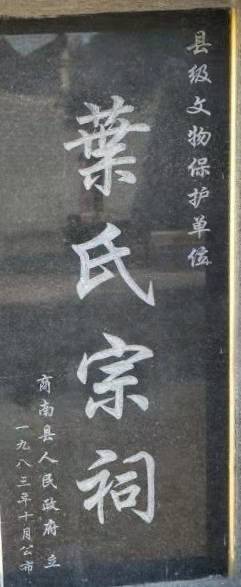 县级文物保护单位
葉氏宗祠
商南县人民政府 立
一九八三年十月公布